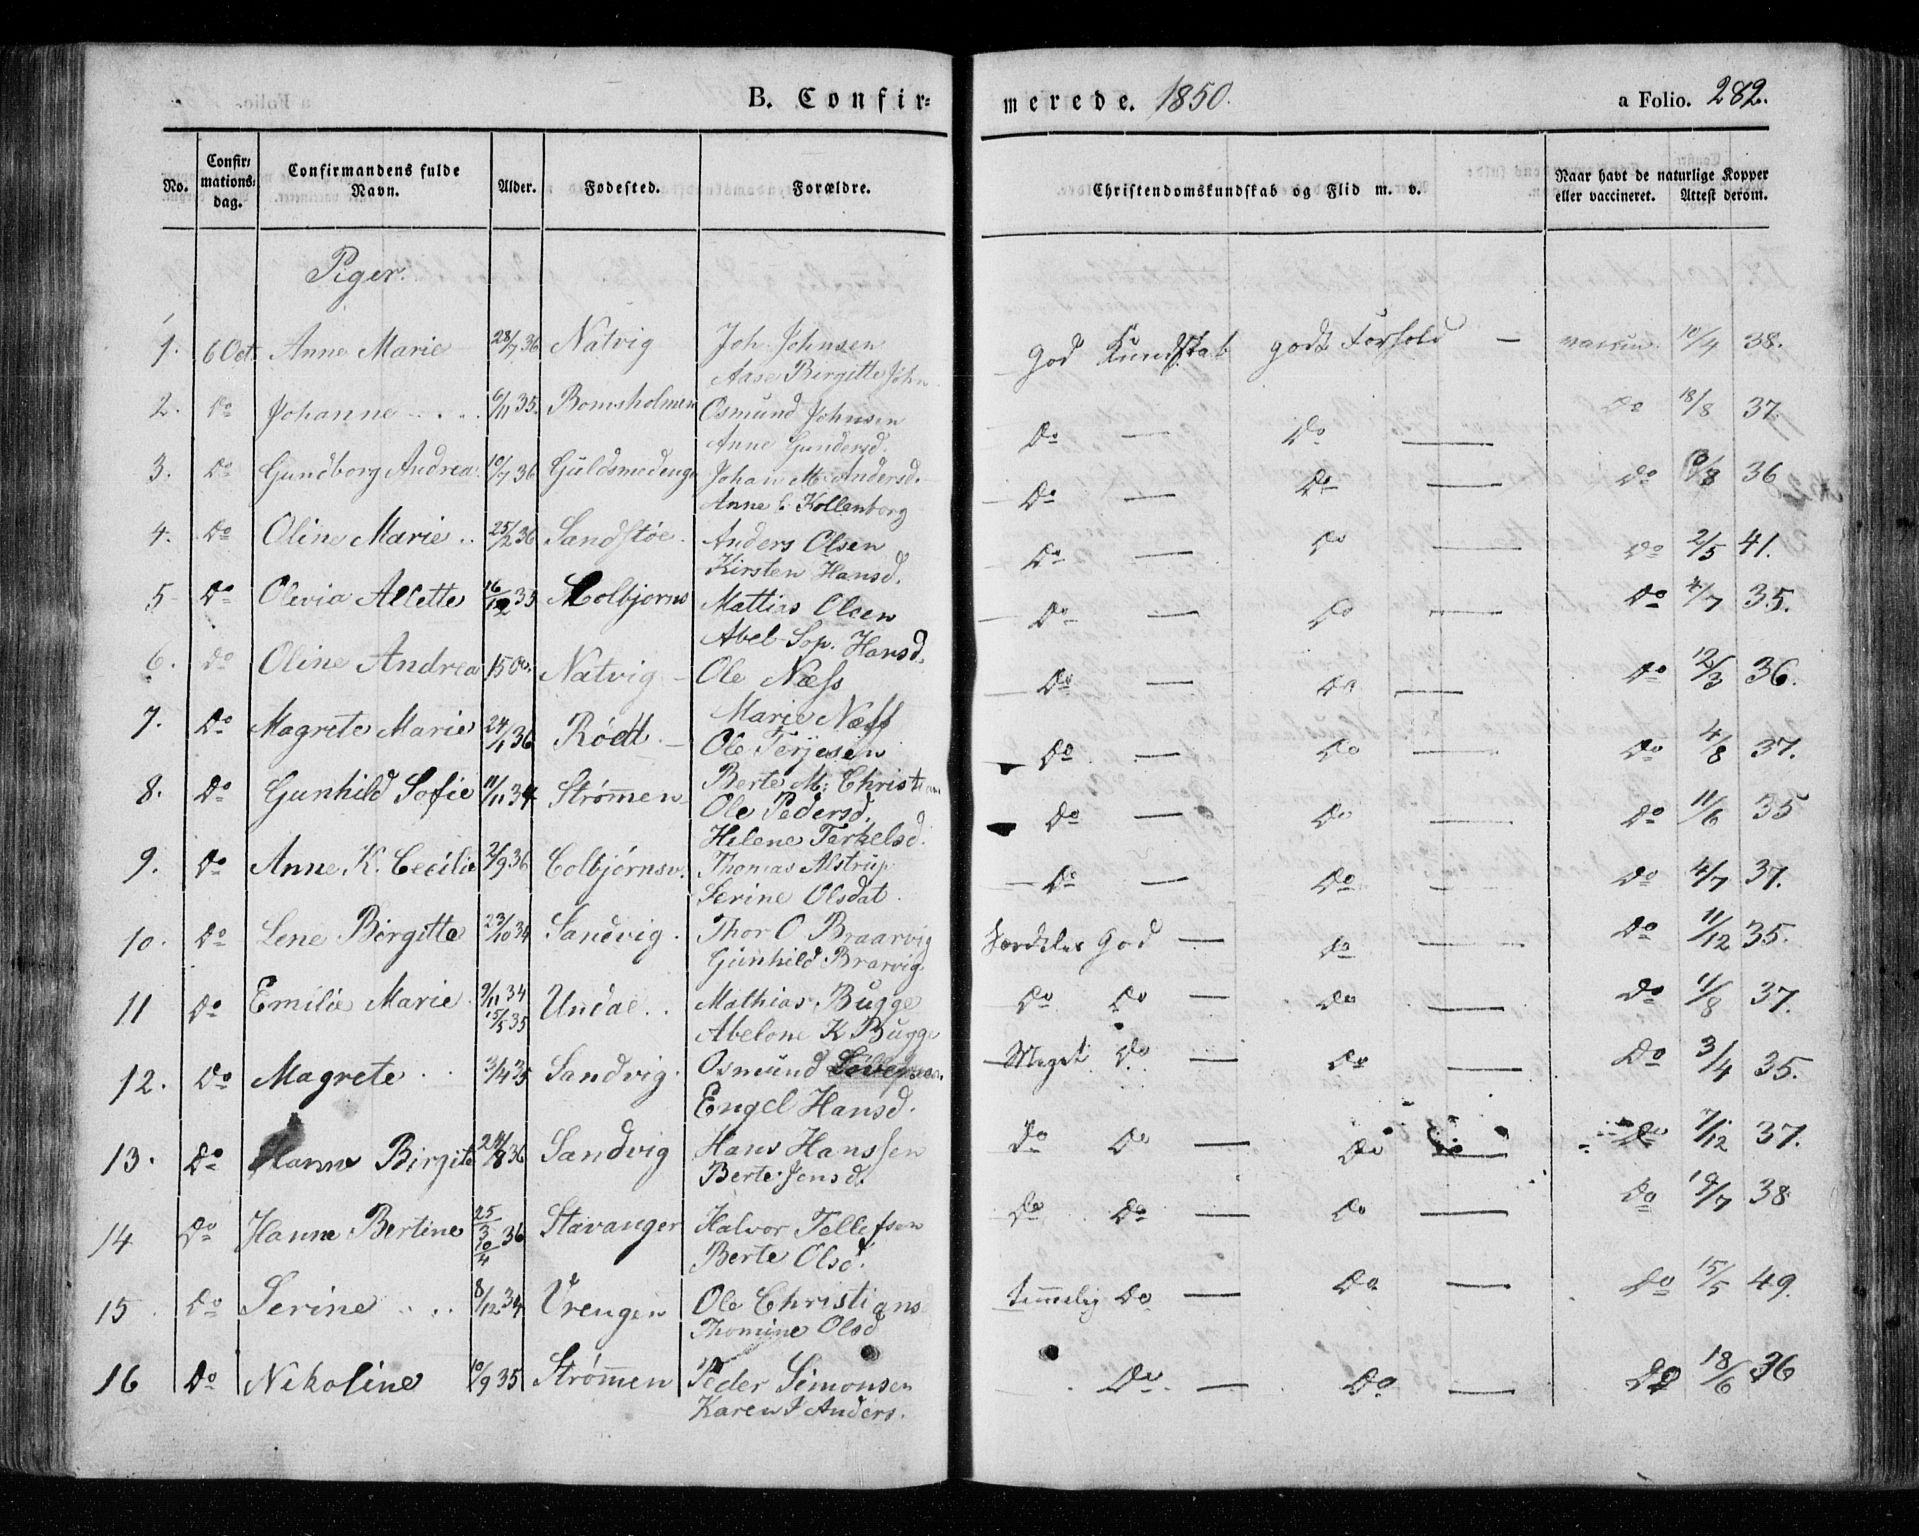 B. Confirmerede. 1850. a Folio. 282.
No. Confirmationsdag. Confirmandens fulde Navn. Alder. Fødested. Forældre. Christendomskundskab og Flid m. v. Naar havt de naturlige Kopper eller vaccineret. Attest derom.
Piger.
1. 6 Oct. Anne Marie 28/7 36 Natvig Joh. Johnsen God Kundskab godt Forhold — vaccin. 10/4 38.
Aase Birgitte John
2. Do Johanne 6/11 35. Bomsholmen Osmund Johnsen Do — Do — Do 18/8 37.
Anne Gundersd.
3. Do Gundborg Andrea 10/7 36 Guldsmedeng Johan M. Andersd. Do — Do — Do 36
Anne C. Kollenborg
4. Do Oline Marie 25/2 36 Sandstøe Anders Olsen Do — Do — Do 2/5 41.
Kirsten Hansd.
5 Do Olevia Allette 16/12 35 Kolbjorns Mattias Olsen Do — Do — Do 4/7 35.
Abel Sop. Hansd.
6. Do Oline Andrea 15 Natvig — Ole Næss Do — Do — Do 12/3 36.
Marie Næss
7. Do Magrete Marie 24/1 36 Rödt — Ole Terjesen Do — Do — Do 4/8 37.
Berte M. Christian
8. Do Gunhild Sofie 11/11 34 Strømen Ole Pedersd. Do — Do — Do 11/6 35
Helene Terkelsd.
9. Do Anne K. Cecilie 2/9 36 Colbjörnsv. Thomas Alstrup Do — Do — Do 4/7 37.
Serine Olsdat.
10. Do Lene Birgitte 23/10 34 Sandvig. Thor O Braarvig Særdeles God — Do Do 11/12 35.
Gunhild Brarvig
11 Do Emilie Marie 9/11 34 Undal.. Mathias Bugge Do Do — Do — Do 11/8 37.
15/5 35 Abelone K Bugge
12. Do Magrete 3/4 35 Sandvig. Osmund Meget Do — Do — Do 3/4 35.
Engel Hansd.
13. Do Hanne Birgite 24/8 36 Sandvig Hans Hanssen Do Do — Do — Do 7/12 37.
Berte Jensd.
14 Do Hanne Bertine 25/3 10/4 36 Stavanger Halvor Tellefsen Do Do — Do — Do 19/7 38
Berte Olsd.
15 Do Serine 8/12 34 Vrengen Ole Christians temmelig Do — Do — Do 15/5 49.
Thomine Olsd
16 Do Nikoline 10/9 35 Strømmen Peder Simonsen Do — Do — Do 18/6 36
Karen J Anders.